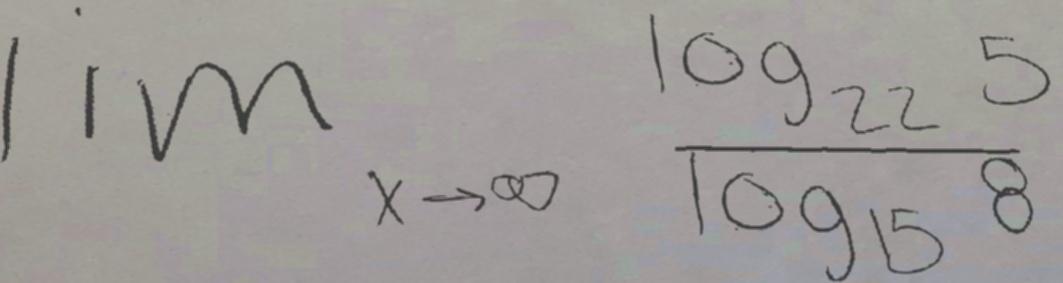 lim x→∞ log₂₂ 5 / log₁₅ 8